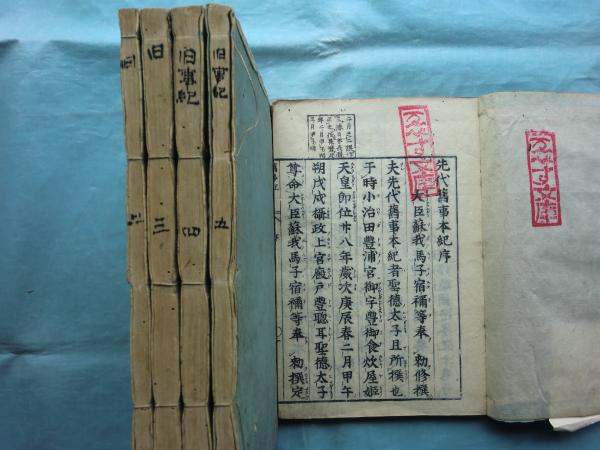 先代舊事本紀序
大臣蘇我馬子宿禰等奉 勅修撰
夫先代舊事本紀者聖德太子且所撰也
于時小治田豐浦宮御宇豐御食炊屋姬
天皇即位廿八年歲次庚辰春二月甲午
朔戊戌攝政上宮廐戶豐聰耳聖德太子
尊命大臣蘇我馬子宿禰等奉 勅撰定
旧事紀
五
旧事紀
四
旧
三
旧